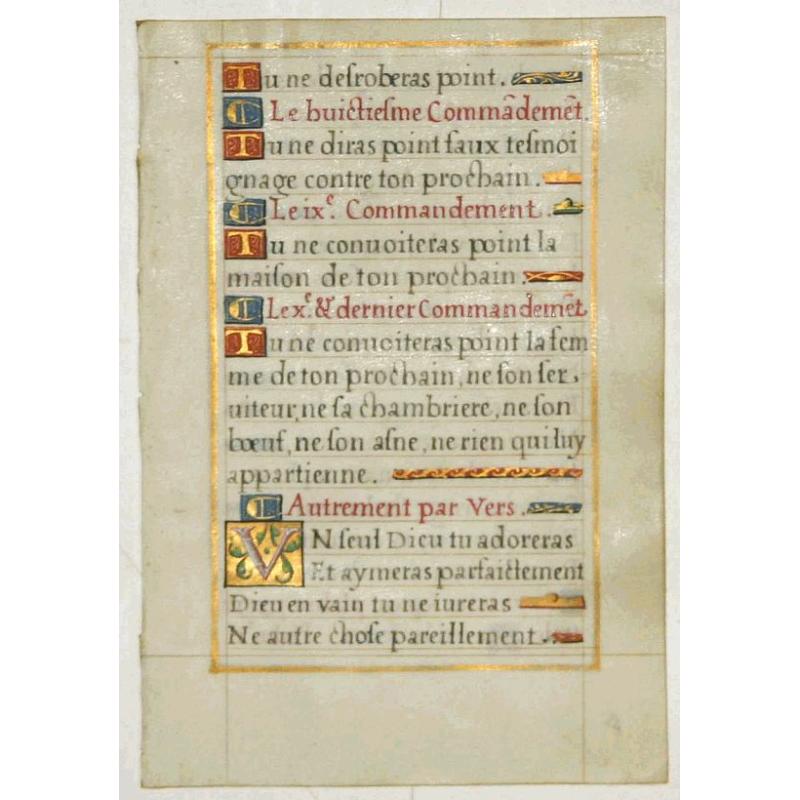 Tu ne deſroberas point.
Le huictieſme Commãdemẽt.
Tu ne diras point faux teſmoi
gnage contre ton prochain.
Le ixᵉ. Commandement.
Tu ne conuoiteras point la
maiſon de ton prochain.
Le xᵉ. & dernier Commandemẽt.
Tu ne conuoiteras point la fem
me de ton prochain, ne ſon ſer,
uiteur, ne ſa chambriere, ne ſon
bœuf, ne ſon aſne, ne rien qui luy
appartienne.
Autrement par Vers.
VN ſeul Dieu tu adoreras
Et aymeras parfaictement
Dieu en vain tu ne iureras
Ne autre choſe pareillement.